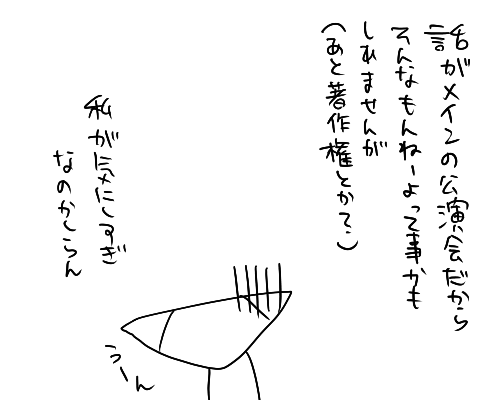 話がメインの公演会だから
そんなもんねーよって事かも
しれませんが
(あと著作権とか?)
私が気にしすぎ
なのかしらん
うーん